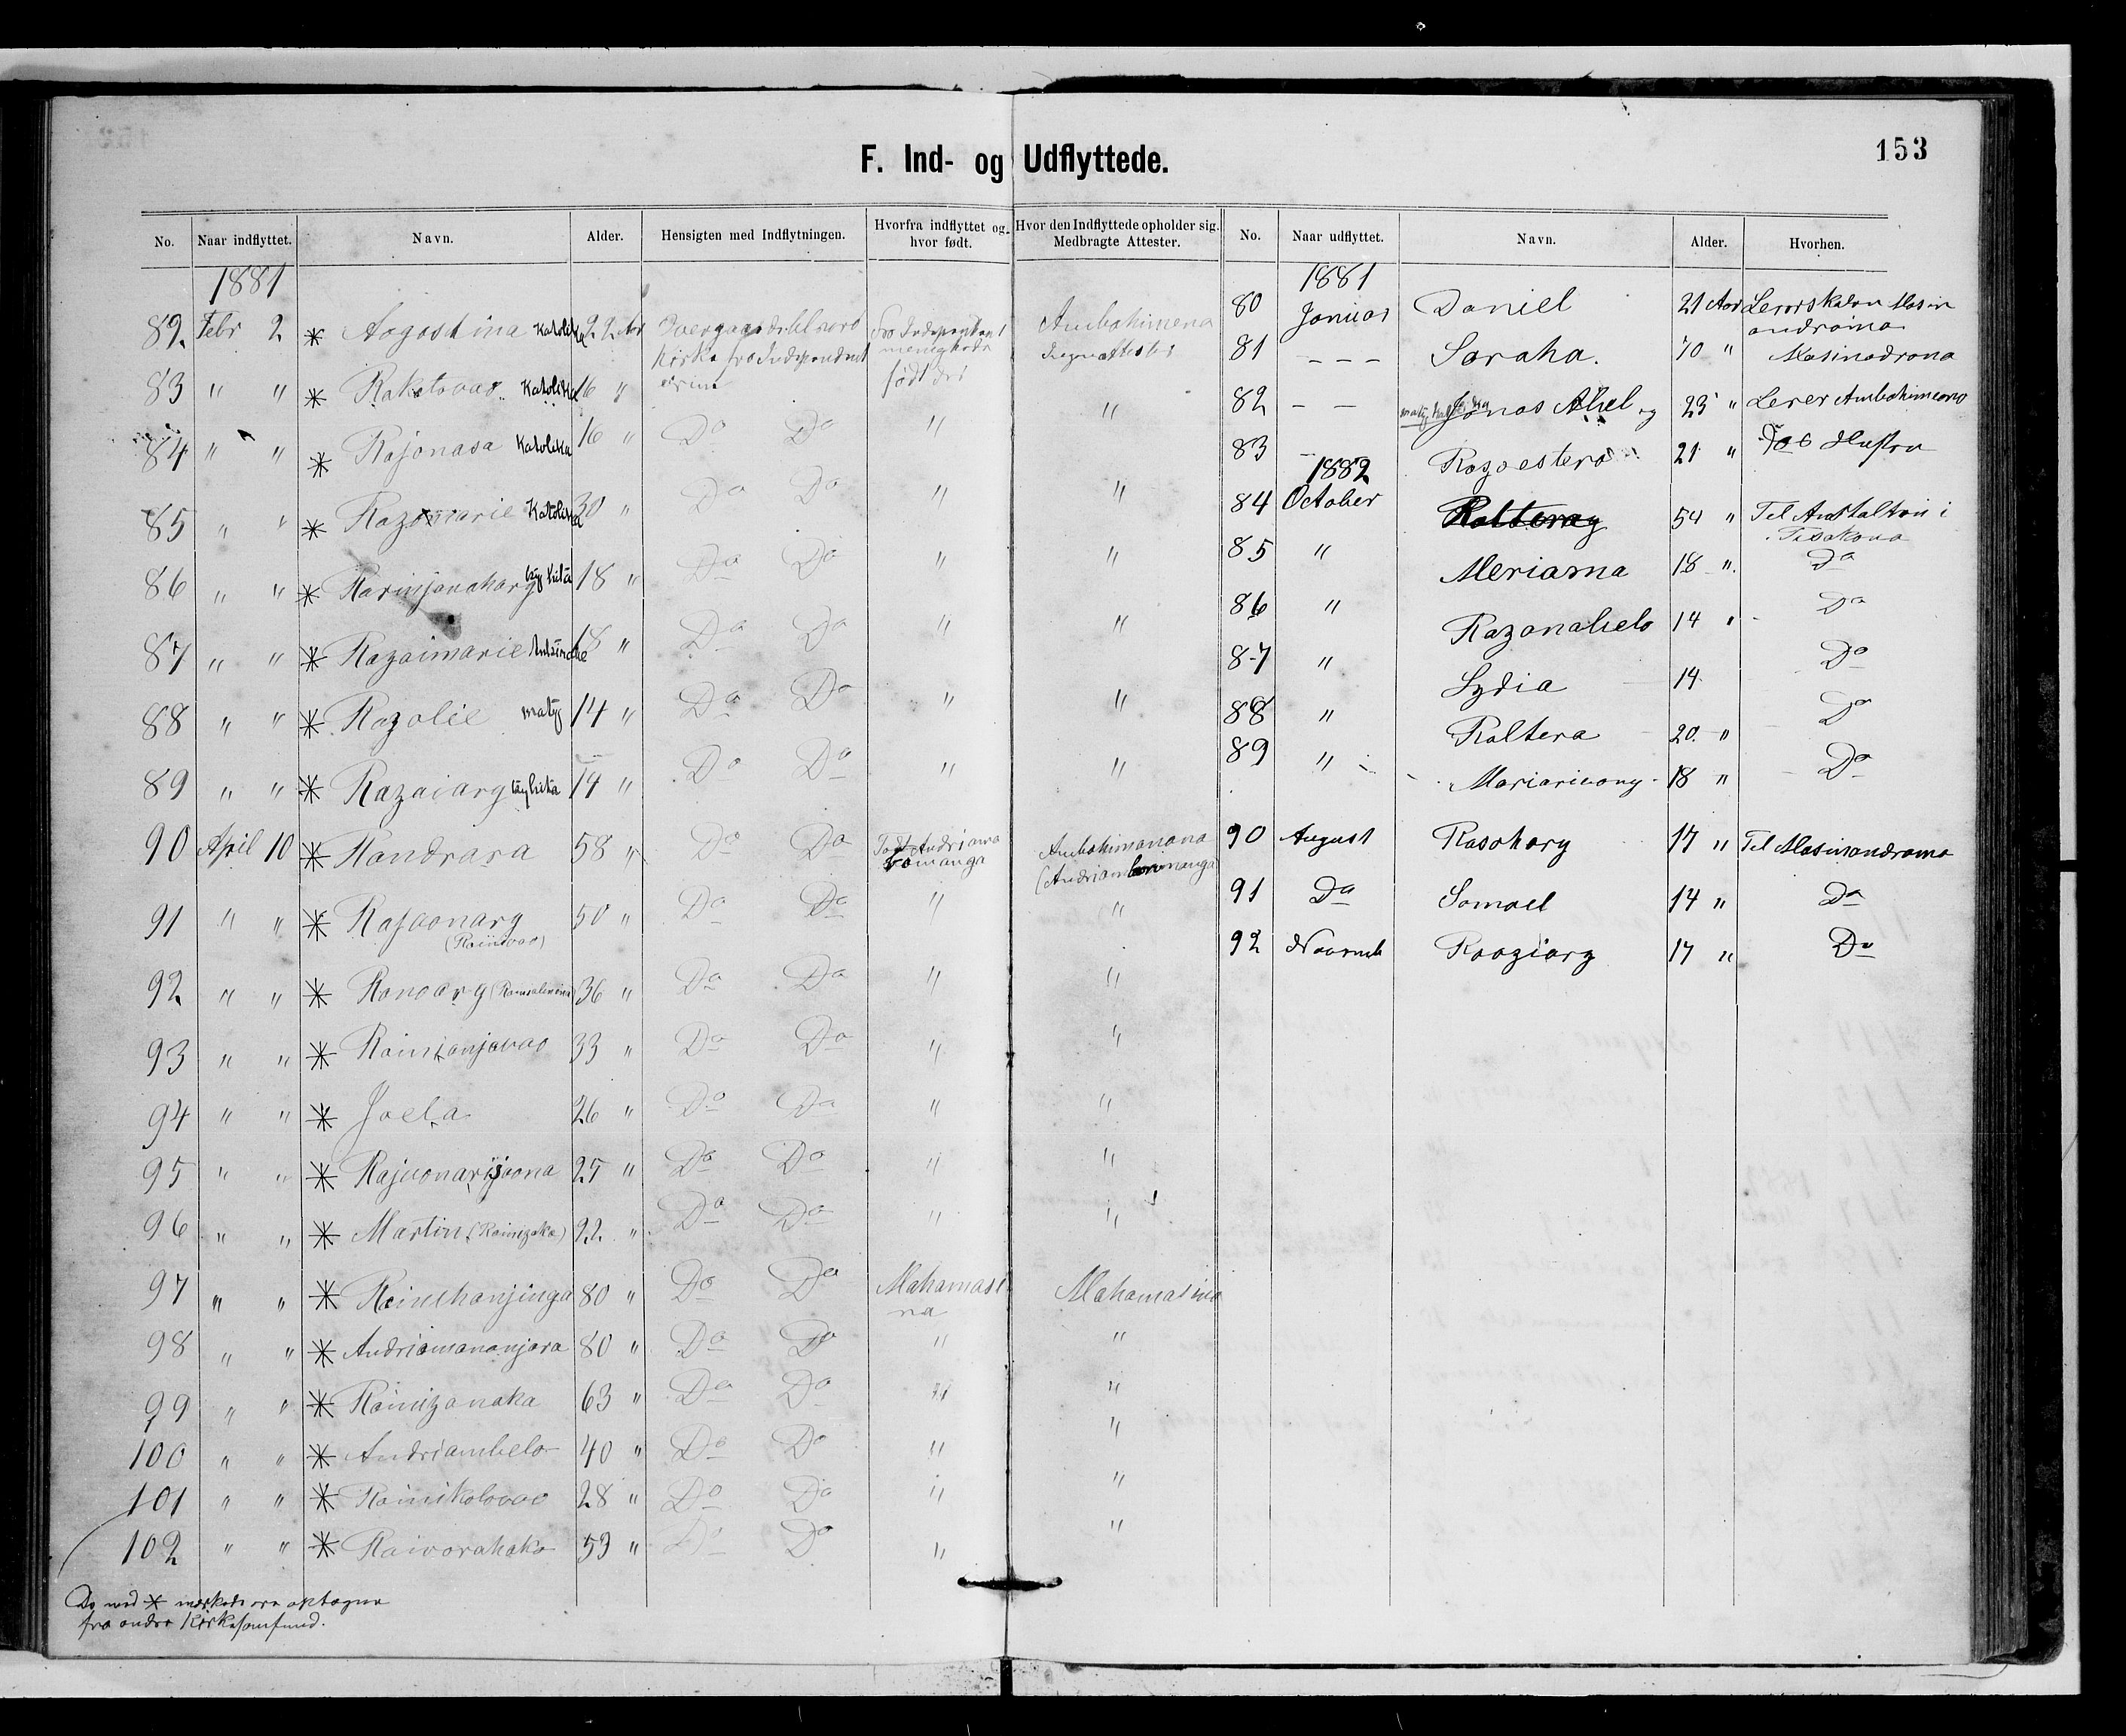 153
F. Ind- og Udflyttede.
No. Naar indflyttet. Navn. Alder. Hensigten med Indflytningen. Hvorfra indflyttet og hvor født. Hvor den Indflyttede opholder sig. Medbragte Attester.
1881
82. Febr 2 * Aogostina Katolika 22 Aar Overgaaede til vore Fra Independent Ambohimena
Kirke fra Independent menighede Ingen Attester
83 " " * Rakotovao Katolika 16 " født der
84 " " * Rajonasa Katolika 16 " Do Do " "
85 " " * Razamarie Katolika 30 " Do Do " "
86 " " * Rarinjanahary tsy hita 18 " Do Do " "
87 " " * Razaimarie 18 " Do Do " "
88 " " * Rozalie maty 14 " Do Do " "
89 " " * Razaiary tsy hita 14 " Do Do " "
90 April 10 * Randrasa 58 " Do Do Ambohimanana
91 " " * 50 " Do Do " "
(Rainivao)
92 " " * Ranoary 36 " Do Do " "
93 " " * Rainianjavao 33 " Do Do " "
94 " " * Joela 26 " Do Do " "
95 " " * 27 " Do Do " "
96 " " * Martin (Rainizaka) 22 " Do Do " "
97 " " * Rainihanjinga 80 " Do Do Mahamasi Mahamasina
na
98 " " * Andriamananjara 80 " Do Do " "
99 " " * Rainizanaka 63 " Do Do " "
100 " " * Andriambelo 40 " Do Do " "
101 " " * Rainikolovao 28 " Do Do " "
102 " " * Raivorahako 53 " Do Do " "
De med * mærkede ere optagne
fra andre Kirkesamfund.
No. Naar udflyttet. Navn. Alder. Hvorhen.
1881
80 Januar Daniel 21 Aar Lererskolen Masin
andraina
81 - - - Saraha. 70 " Masinadrana
82 - - maty katolika Jonas Abel og 23 " Lerer
83 - Razoestera 21 " Hustru
1882
84 October 54 " Til Anstalten i
85 " Meriama 18 " Do
86 " Razanabelo 14 " Do
87 " Lydia 14 Do
88 " Raltera 20 " Do
89 " Mariarivony 18 " Do
90 August Rasohary 17 " Til Masinandraina
91 Do Samoel 14 " Do
92 Novemb 17 " Do